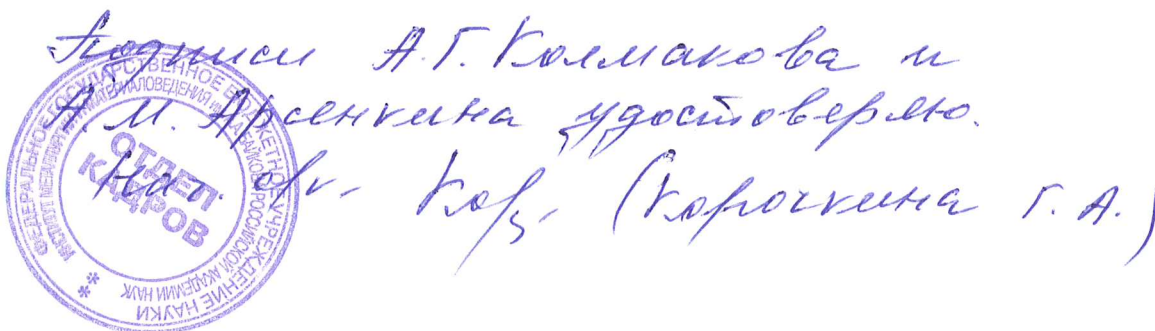 Подписи А.Г. Колмакова и
А.М. Арсенкина удостоверяю.
Нач. ок. (Корочкина Г.А.)
ФЕДЕРАЛЬНОЕ ГОСУДАРСТВЕННОЕ БЮДЖЕТНОЕ УЧРЕЖДЕНИЕ НАУКИ
ИНСТИТУТ МЕТАЛЛУРГИИ И МАТЕРИАЛОВЕДЕНИЯ ИМ. А.А. БАЙКОВА РОССИЙСКОЙ АКАДЕМИИ НАУК
ОТДЕЛ
КАДРОВ